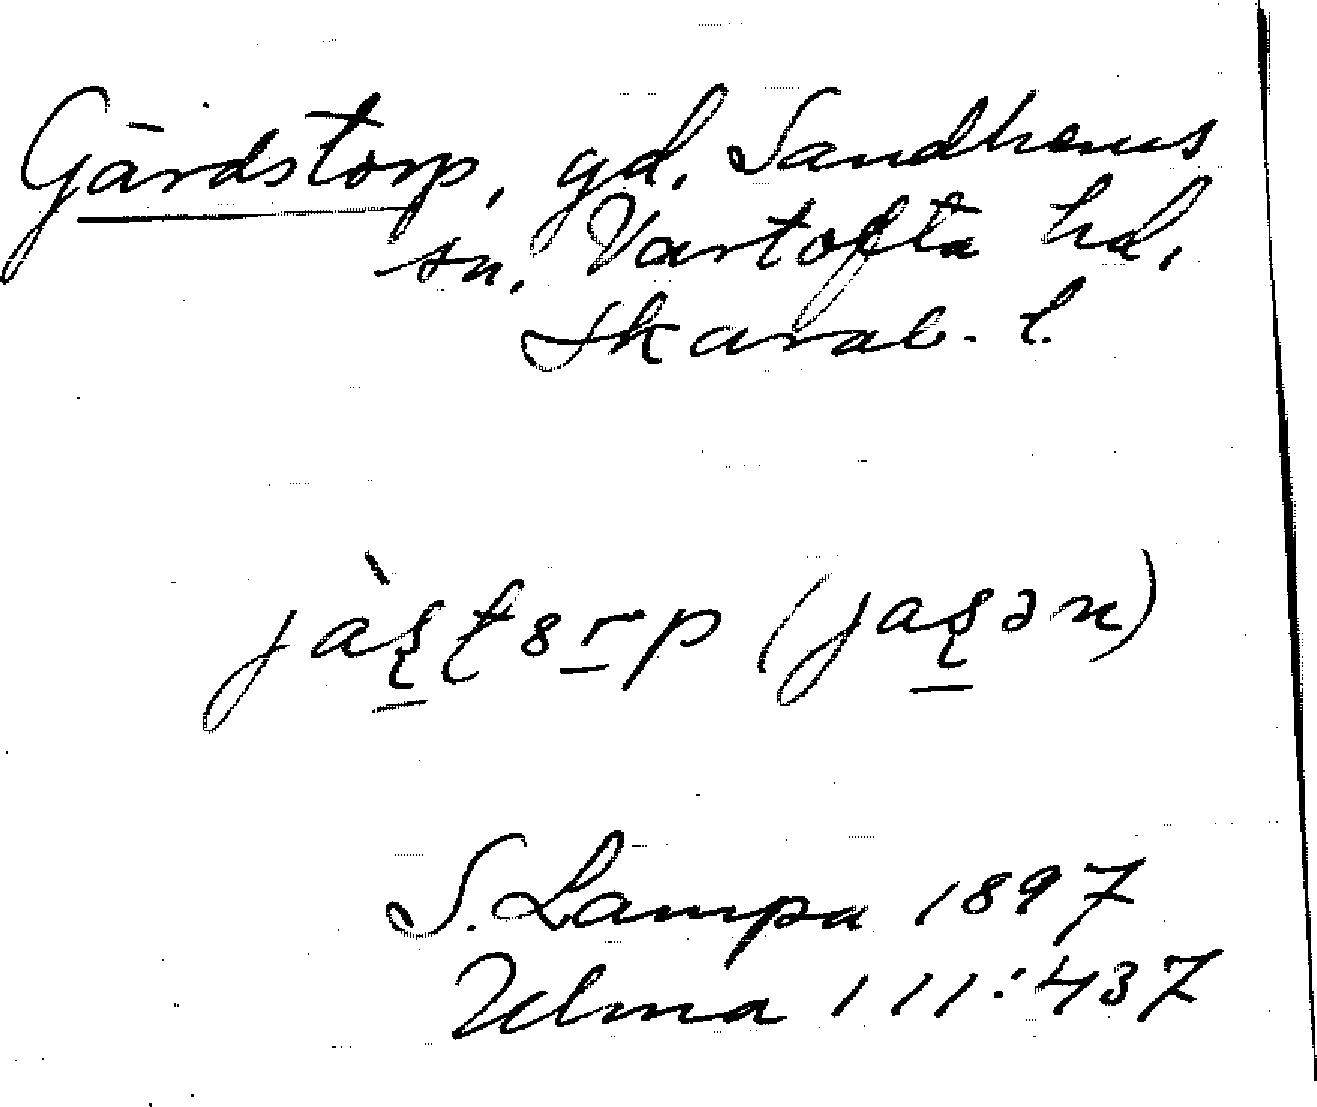 Gärdstorp, gd, Sandhems
sn, Vartofta hd,
Skarab. l.
jàʂʈ8rp (jaʂən)
S. Lampa 1897
Ulma 111:437